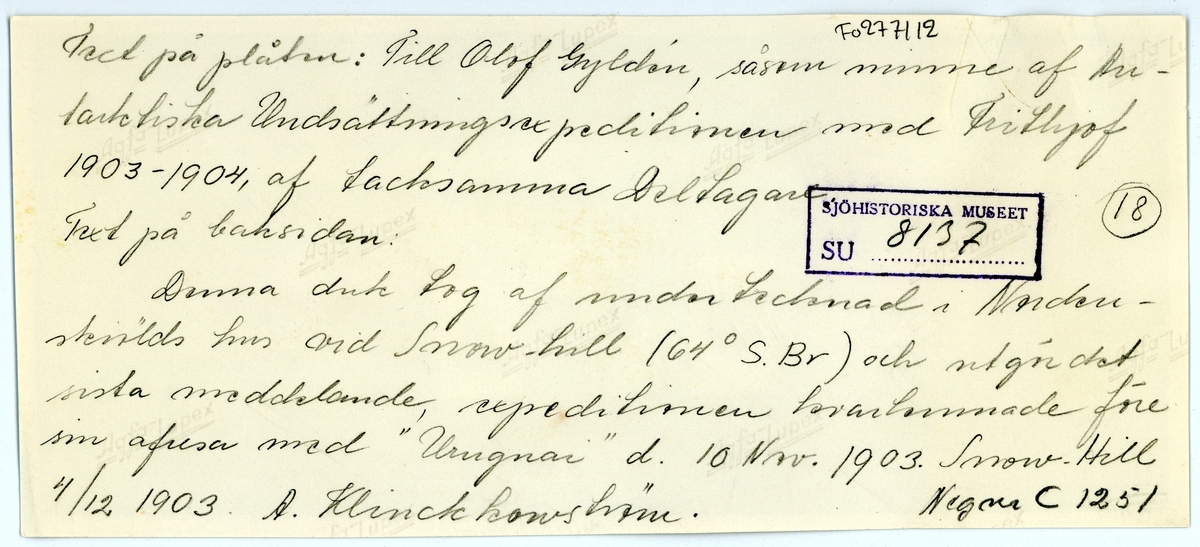 Fo277112
Text på plåten: Till Olof Gyldén, såsom minne af An-
tarktiska Undsättningsexpeditionen med Frithjof
1903-1904, af tacksamma Deltagare.
18
SJÖHISTORISKA MUSEET
SU 8137
Text på baksidan:
Denna duk tog af undertecknad i Norden-
skiölds hus vid Snow-hill (64° S. Br) och utgör det
sista meddelande, expeditionen kvarlemnade före
sin afresa med "Uruguai" d. 10 Nov. 1903. Snow-Hill
4/12 1903. A. Klinckhowström.
Neg nr C 1251